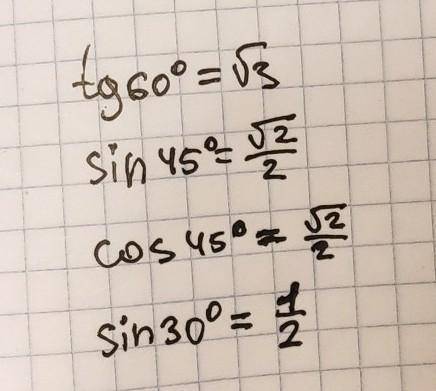 tg 60° = √3
sin 45° = √2/2
cos 45° = √2/2
sin 30° = 1/2